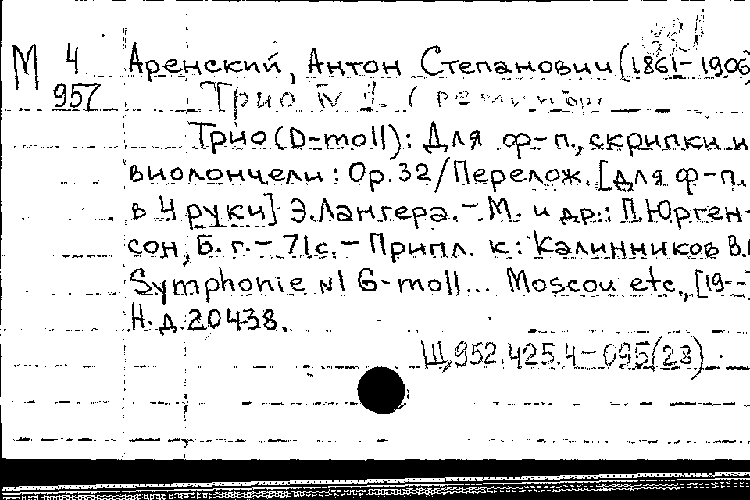 М 4
957
Аренский, Антон Степанович (1861-1906)
Трио № 1.
Трио (D-moll): Для ф-п., скрипки и
виолончели: Ор. 32/Перелож. [для ф-п.
в 4 руки] Э. Лангера. - М. и др.: П. Юрген-
сон, Б. г. - 71с. - Припл. к: Калинников В.
Symphonie №1 G-moll... Moscou etc., [19--
Н. д. 20438.
Щ952.425.4-095(28)